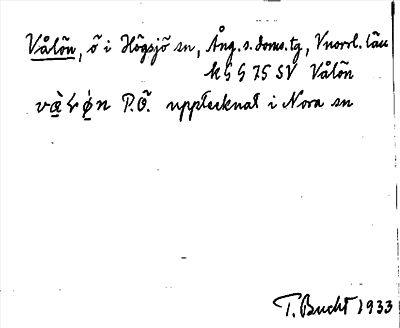 Vålön, ö i Högsjö sn, Ång. s. doms. tg, Vnorrl. län
k G G 75 SV Vålön
P.Ö. upptecknat i Nora sn
T. Bucht 1933